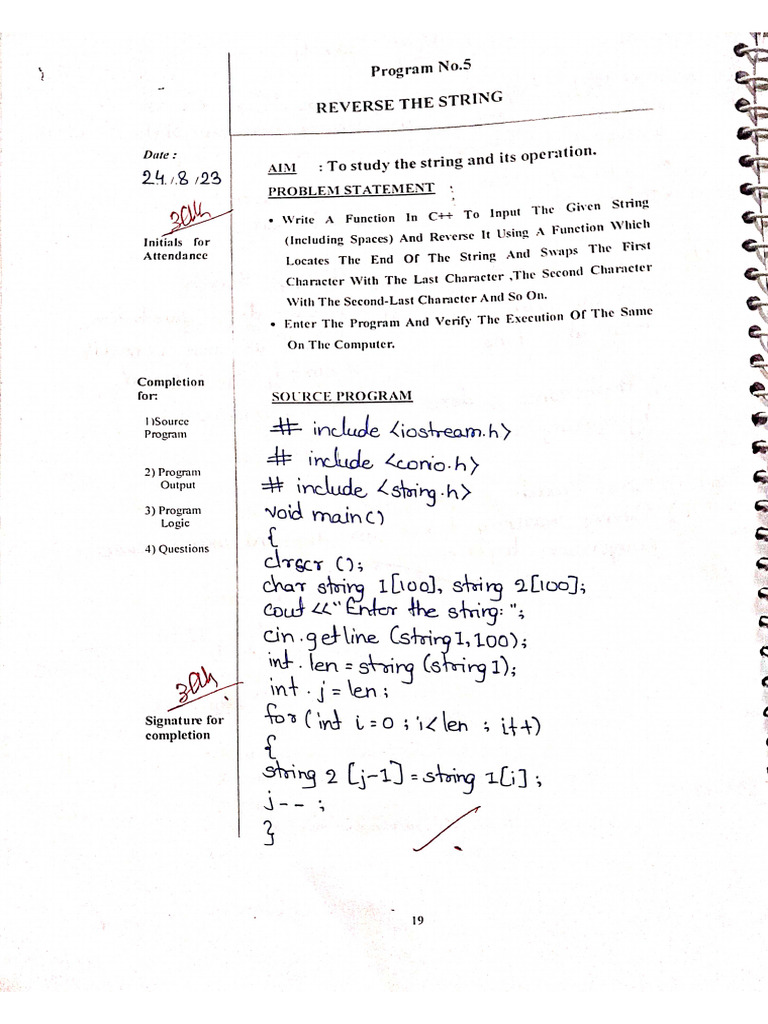 Program No.5
REVERSE THE STRING
Date :
24/8/23
Initials for
Attendance
AIM : To study the string and its operation.
PROBLEM STATEMENT :
• Write A Function In C++ To Input The Given String
(Including Spaces) And Reverse It Using A Function Which
Locates The End Of The String And Swaps The First
Character With The Last Character ,The Second Character
With The Second-Last Character And So On.
• Enter The Program And Verify The Execution Of The Same
On The Computer.
Completion
for:
1)Source
Program
2) Program
Output
3) Program
Logic
4) Questions
Signature for
completion
SOURCE PROGRAM
# include <iostream.h>
# include <conio.h>
# include <string.h>
void main()
{
clrscr ();
char string 1[100], string 2[100];
cout <<"Enter the string: ";
cin.getline (string1,100);
int. len = string (string1);
int. j = len ;
for (int i=0 ; i<len ; i++)
{
string 2 [j-1] = string 1[i] ;
j-- ;
}
19